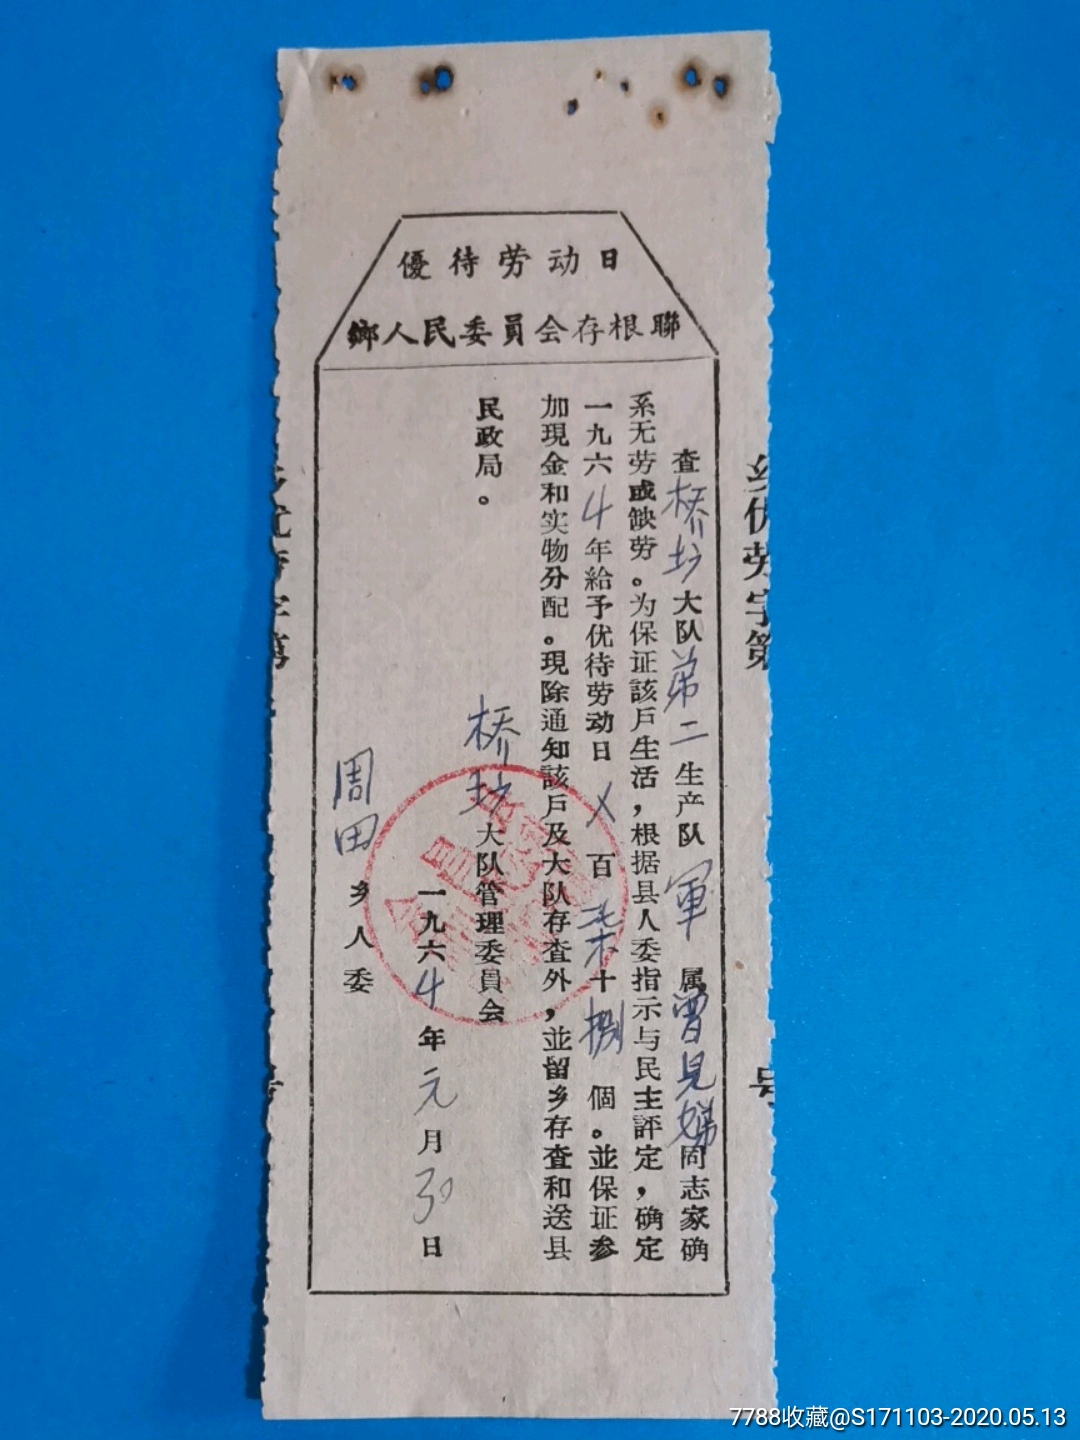 優待劳动日
鄉人民委員会存根聯
查桥坊大队第二生产队 軍 属曾見娣同志家确
系无劳或缺劳。为保证該戶生活，根据县人委指示与民主評定，确定
一九六4年給予优待劳动日 X 百 柒十捌 個。並保证参
加現金和实物分配。現除通知該戶及大队存查外，並留乡存查和送县
民政局。
桥坊大队管理委員会
一九六4年元月30日
周田乡人委
优劳字第
号
7788收藏@S171103-2020.05.13